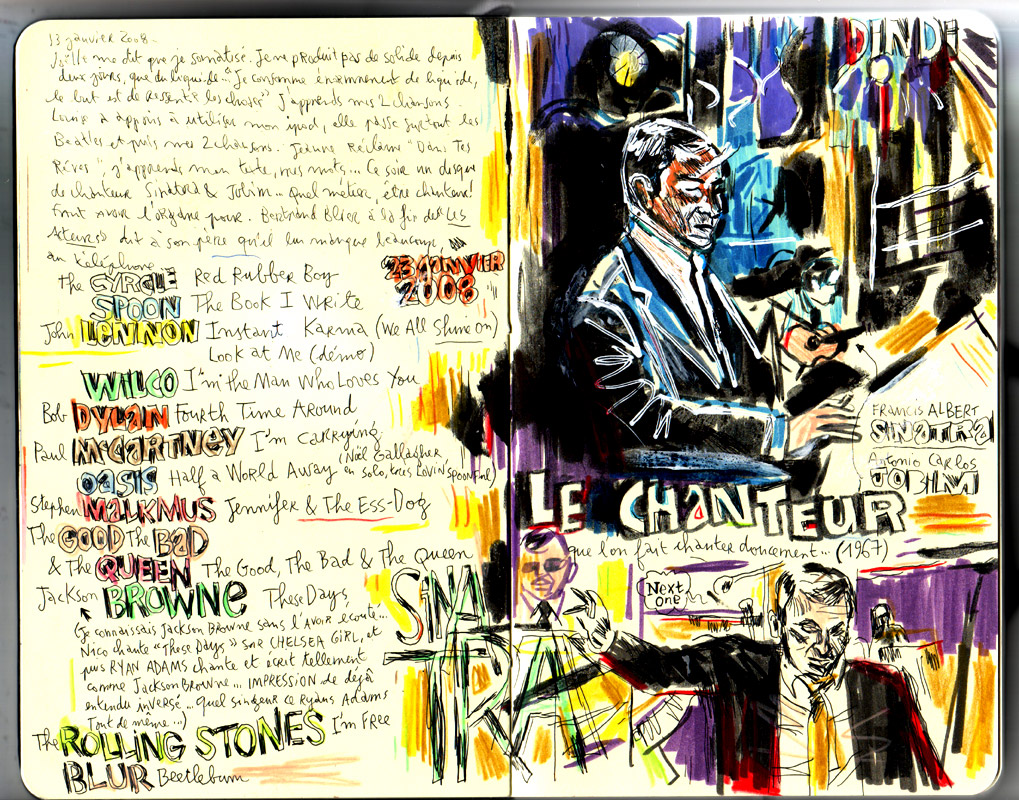 13 janvier 2008 -
Joëlle me dit que je somatise. Je ne produit pas de solide depuis
deux jours, que du liquide. "Je consomme énormément de liquide,
le but est de ressentir les choses" J'apprends mes 2 chansons.
Louise a appris à utiliser mon ipod, elle passe surtout les
Beatles et puis mes 2 chansons. Jeanne Réclame "Dans Tes
Rêves", j'apprends mon texte, mes mots... Ce soir un disque
de chanteur Sinatra & Jobim... Quel métier, être chanteur!
Faut avoir l'organe pour. Bertrand Blier à la fin des Les
Acteurs dit à son père qu'il lui manque beaucoup,
au téléphone
23 JANVIER
2008
The CYRCLE Red Rubber Boy
SPOON The Book I Write
John LENNON Instant Karma (We All Shine on)
Look at Me (démo)
WILCO I'm the Man Who Loves You
Bob DYLAN Fourth Time Around
Paul McCARTNEY I'm carrying
OASIS Half a World Away (Noël Gallagher
en solo, très LOVIN SPOONFUL)
Stephen MALKMUS Jennifer & The Ess-Dog
The GOOD The BAD
& The QUEEN The Good, The Bad & The Queen
Jackson BROWNE These Days
(je connaissais Jackson Browne sans l'AVOIR écouté...
Nico chante "These Days" sur CHELSEA GIRL, et
puis RYAN ADAMS chante et écrit tellement
comme Jackson Browne... IMPRESSION de déjà
entendu inversé... Quel singeur ce Ryan Adams
Tout de même...)
The ROLLING STONES I'm FREE
BLUR Beetlebum
DINDI
FRANCIS ALBERT
SINATRA
Antonio Carlos
JOBIM
LE CHANTEUR
que l'on fait chanter doucement... (1967)
Next
one
SINA
TRA